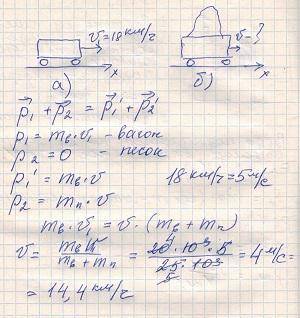 v = 18 км/ч
v - ?
x
x
а)
б)
p⃗₁ + p⃗₂ = p⃗₁' + p⃗₂'
p₁ = mв·v₁ - вагон
p₂ = 0 - песок
p₁' = mв·v 18 км/ч = 5 м/с
p₂ = mп·v
mв·v₁ = v·(mв + mп)
v = mвv₁ / mв + mп = 20·10³·5 / 25·10³ = 4 м/с =
= 14,4 км/ч